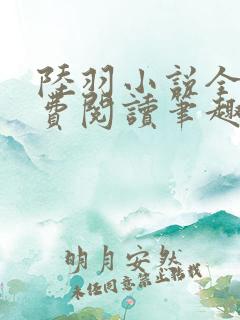 陸羽小說全
費閱讀筆趣
明月安然
未经同意禁止转载